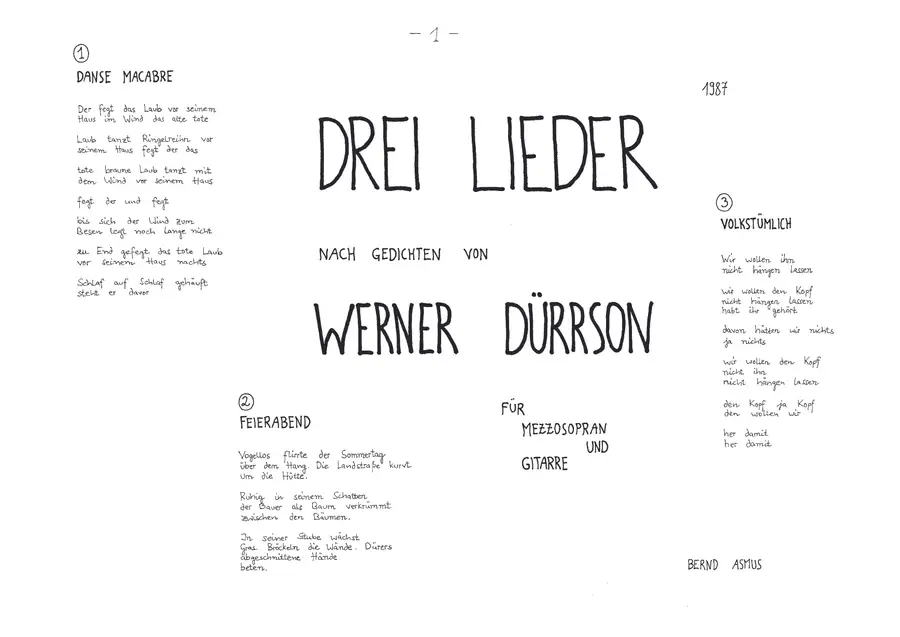 - 1 -
①
DANSE MACABRE
Der fegt das Laub vor seinem
Haus im Wind das alte tote
Laub tanzt Ringelreihn vor
seinem Haus fegt der das
tote braune Laub tanzt mit
dem Wind vor seinem Haus
fegt der und fegt
bis sich der Wind zum
Besen legt noch lange nicht
zu End gefegt das tote Laub
vor seinem Haus nachts
Schlaf auf Schlaf gehäuft
steht er davor
1987
DREI LIEDER
NACH GEDICHTEN VON
WERNER DÜRRSON
FÜR
MEZZOSOPRAN
UND
GITARRE
②
FEIERABEND
Vogellos flirrte der Sommertag
über dem Hang. Die Landstraße kurvt
um die Hütte.
Ruhig in seinem Schatten
der Bauer als Baum verkrümmt
zwischen den Bäumen.
In seiner Stube wächst
Gras. Bröckeln die Wände. Dürers
abgeschnittene Hände
beten.
③
VOLKSTÜMLICH
Wir wollen ihn
nicht hängen lassen
wir wollen den Kopf
nicht hängen lassen
habt ihr gehört
davon hätten wir nichts
ja nichts
wir wollen den Kopf
nicht ihn
nicht hängen lassen
den Kopf ja Kopf
den wollen wir
her damit
her damit
BERND ASMUS